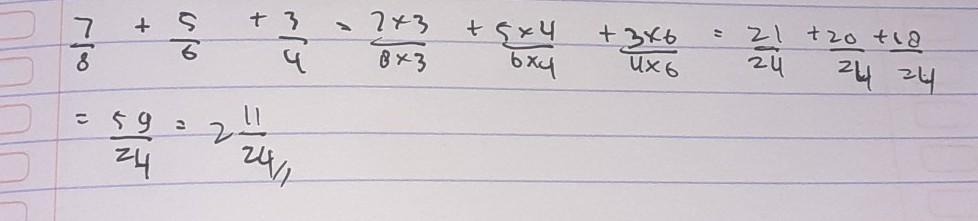 7/8 + 5/6 + 3/4 = 7×3/8×3 + 5×4/6×4 + 3×6/4×6 = 21/24 + 20/24 + 18/24
= 59/24 = 2 11/24 //